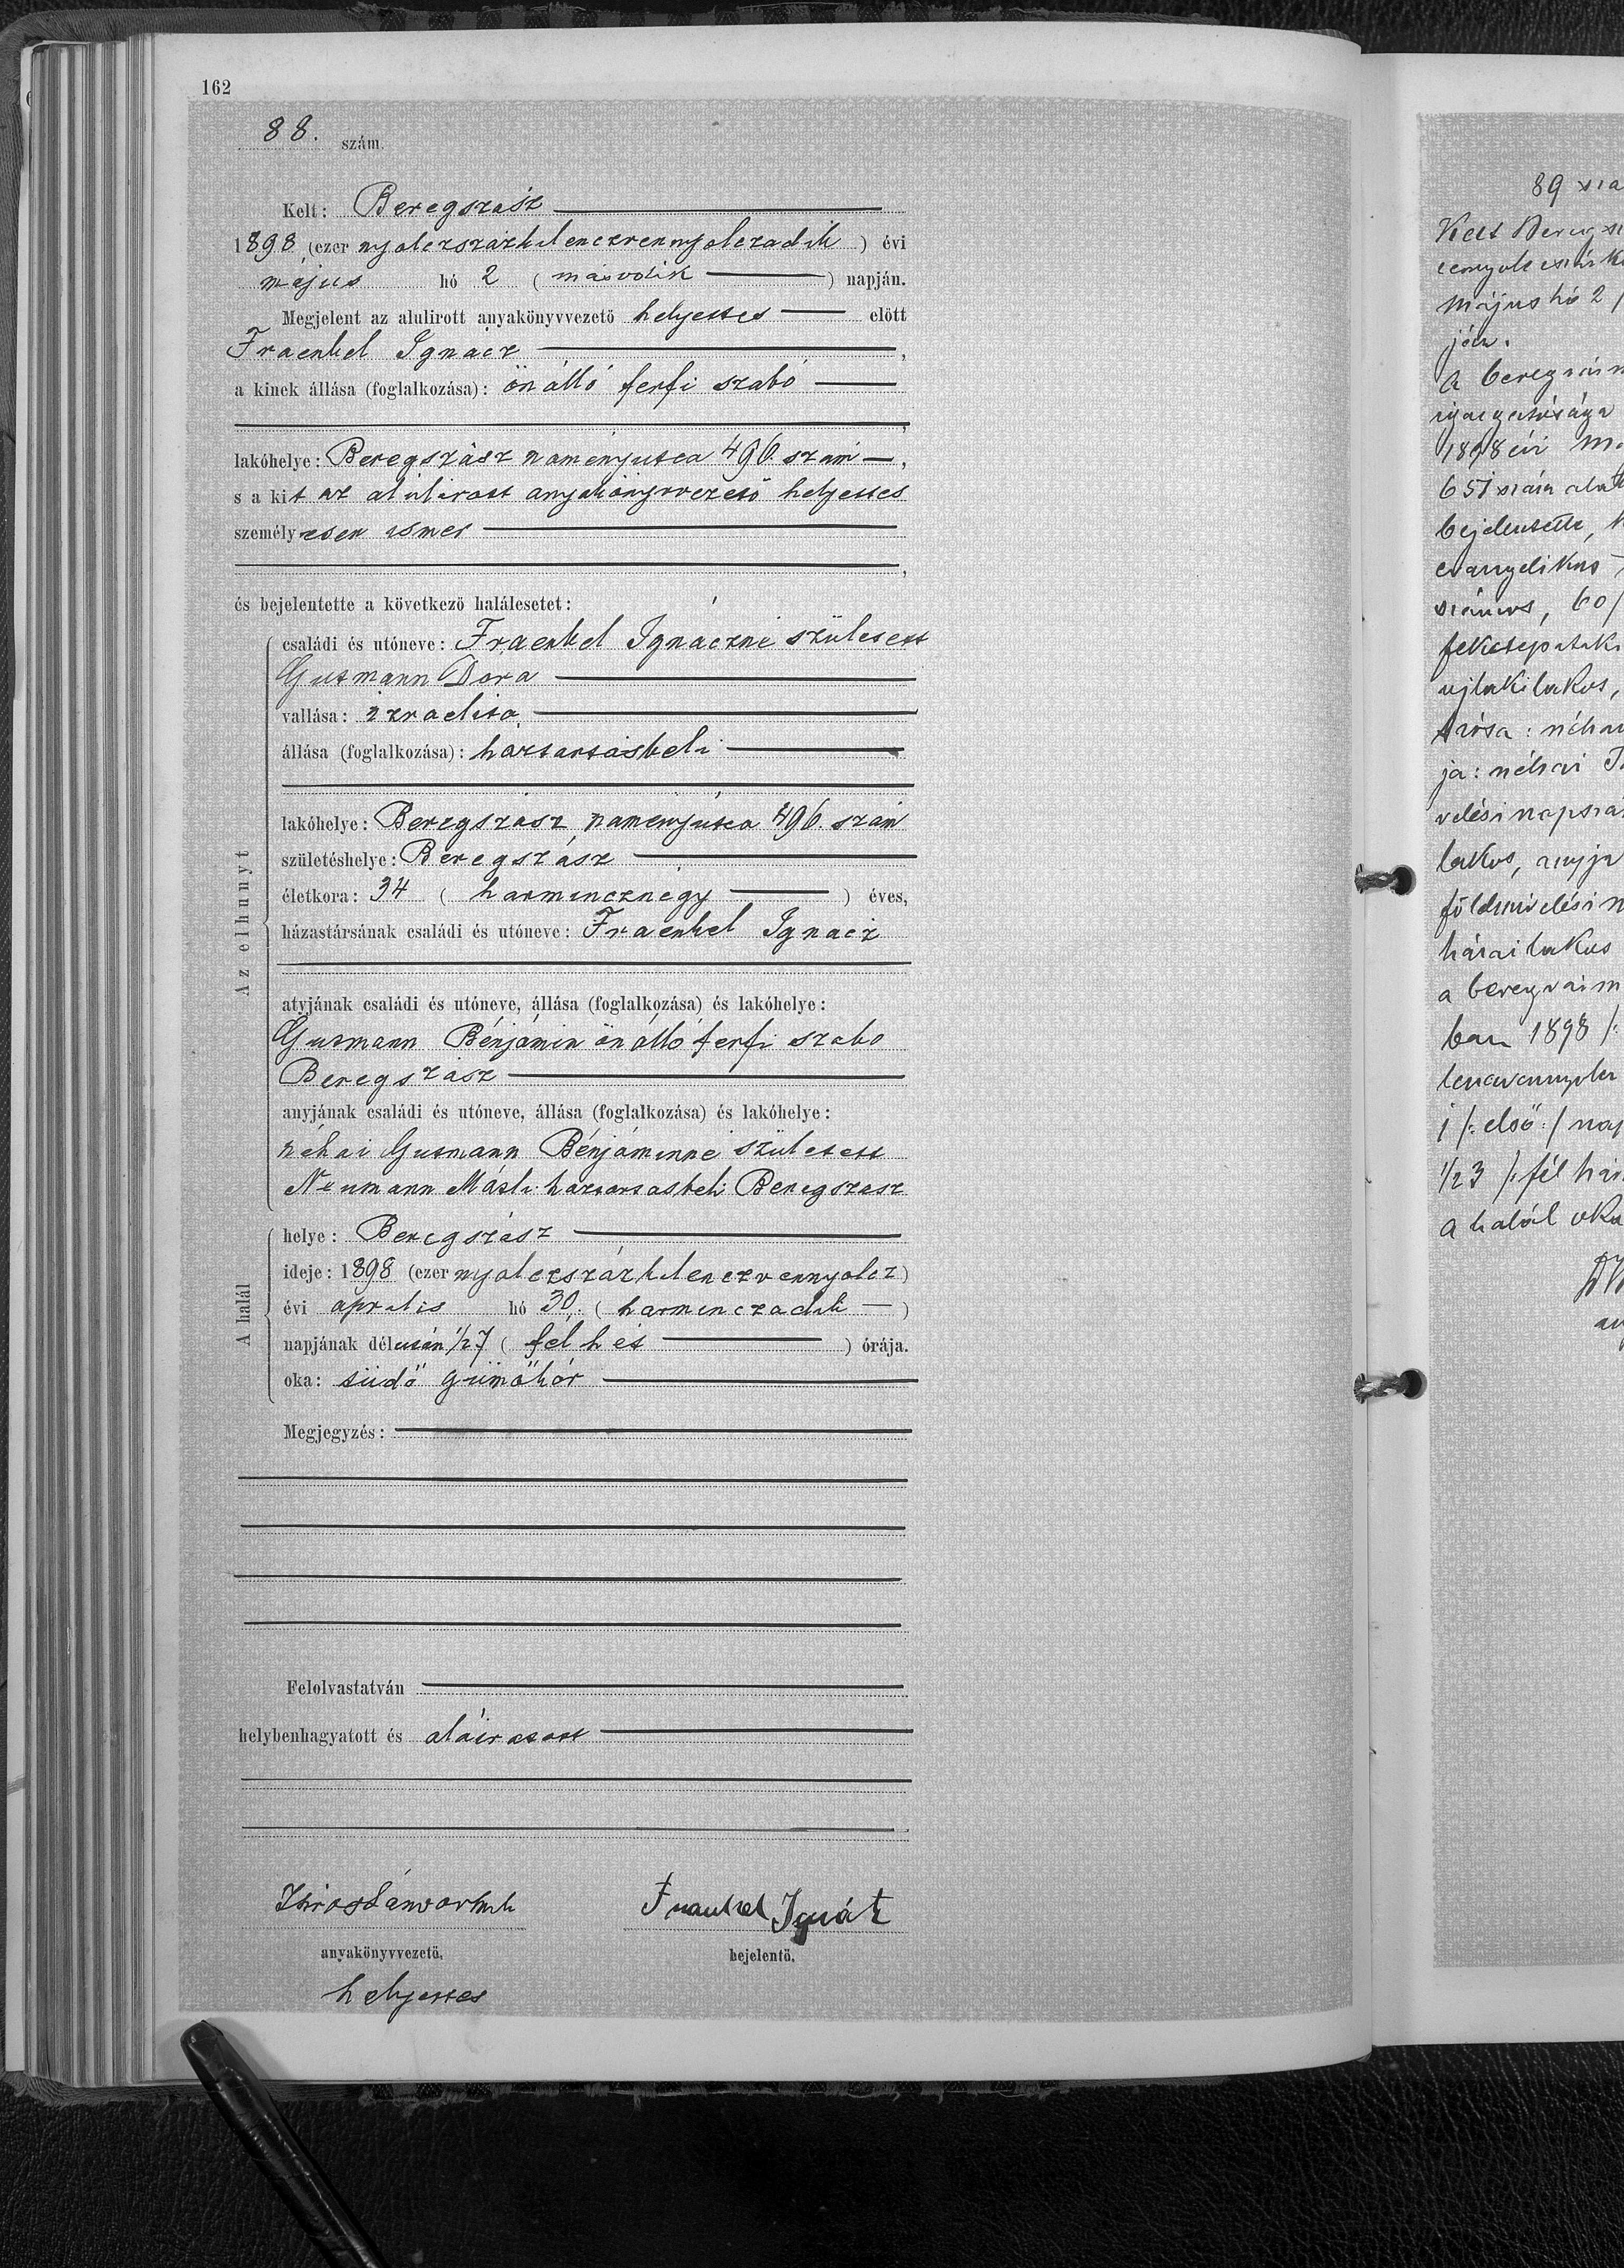 162
88. szám.
Kelt: Beregszász
1898 (ezer nyolczszázkilenczvennyolczadik) évi
május hó 2 (második) napján.
Megjelent az alulirott anyakönyvvezető helyettes előtt
Fraenkel Ignácz,
a kinek állása (foglalkozása): önálló ferfi szabó
,
lakóhelye: Beregszász naményutca 496. szám,
s a kit az alulirott anyakönyvvezető helyettes
személyesen ismer
,
és bejelentette a következő halálesetet:
Az elhunyt
családi és utóneve: Fraenkel Ignáczné született
Gutmann Dora
vallása: izraelita
állása (foglalkozása): háztartásbeli
lakóhelye: Beregszász, naményutca 496. szám
születéshelye: Beregszász
életkora: 34 (harmincznégy) éves,
házastársának családi és utóneve: Fraenkel Ignácz
atyjának családi és utóneve, állása (foglalkozása) és lakóhelye:
Gutmann Bénjámin önálló ferfi szabo
Beregszász
anyjának családi és utóneve, állása (foglalkozása) és lakóhelye:
néhai Gutmann Bénjáminné született
Neumann Máli háztartásbeli Beregszász
A halál
helye: Beregszász
ideje: 1898 (ezer nyolczszázkilenczvennyolcz)
évi április hó 30. (harminczadik)
napjának délután 1/27 (fél hét) órája.
oka: tüdő gümőkór
Megjegyzés:
Felolvastatván
helybenhagyatott és aláiratott
anyakönyvvezető,
helyettes
Frankel Ignátz
bejelentő.
89
Kelt
május hó 2
ján.
a
1898 évi
651 szám alatt
bejelentette,
evangelikus
60/
ujlaki lakos,
ja: néhai
lakos, anyja
hárai lakos
a
ban 1898 /:
1 /: első :/ nap
1/23 /: fél há
a halál oka